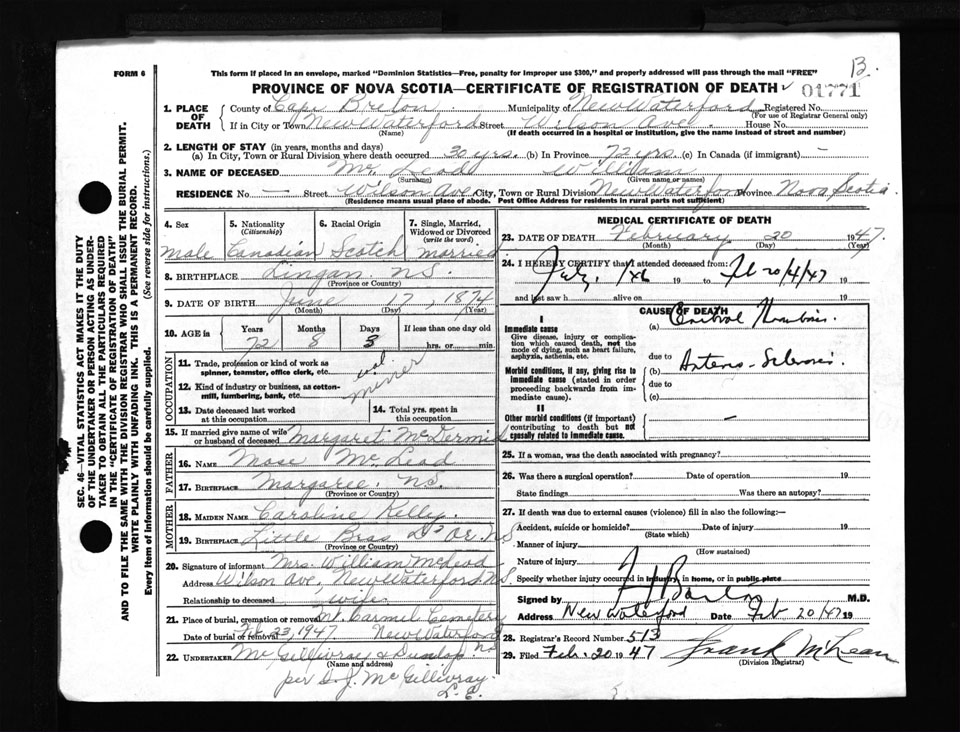 FORM 6
This form if placed in an envelope, marked "Dominion Statistics—Free, penalty for improper use $300," and properly addressed will pass through the mail "FREE"
B.
PROVINCE OF NOVA SCOTIA—CERTIFICATE OF REGISTRATION OF DEATH
01771
1. PLACE OF DEATH
County of Cape Breton Municipality of New Waterford Registered No.
(For use of Registrar General only)
If in City or Town New Waterford Street Wilson Ave House No.
(Name) (If death occurred in a hospital or institution, give the name instead of street and number)
2. LENGTH OF STAY (in years, months and days)
(a) In City, Town or Rural Division where death occurred 30 yrs. (b) In Province 72 yrs. (c) In Canada (if immigrant) —
3. NAME OF DECEASED Mc Leod William
(Surname) (Given name or names)
RESIDENCE No — Street Wilson Ave City, Town or Rural Division New Waterford Province Nova Scotia
(Residence means usual place of abode. Post Office Address for residents in rural parts not sufficient)
4. Sex
5. Nationality (Citizenship)
6. Racial Origin
7. Single, Married, Widowed or Divorced (write the word)
Male Canadian Scotch married
8. BIRTHPLACE Lingan, N.S.
(Province or Country)
9. DATE OF BIRTH June 17, 1874
(Month) (Day) (Year)
10. AGE is
Years Months Days If less than one day old
72 8 3 hrs. or min.
OCCUPATION
11. Trade, profession or kind of work as spinner, teamster, office clerk, etc.
12. Kind of industry or business, as cotton-mill, lumbering, bank, etc.
miner
13. Date deceased last worked at this occupation
14. Total yrs. spent in this occupation
15. If married give name of wife or husband of deceased Margaret McDermid
FATHER
16. NAME Mose Mc Leod
17. BIRTHPLACE Margaree, N.S.
(Province or Country)
MOTHER
18. MAIDEN NAME Caroline Kelly
19. BIRTHPLACE Little Bras D'Or, N.S
(Province or Country)
20. Signature of informant Mrs. William McLeod
Address Wilson Ave, New Waterford, N.S.
Relationship to deceased wife
21. Place of burial, cremation or removal Mt. Carmel Cemetery
Date of burial or removal Feb 23, 1947. New Waterford
22. UNDERTAKER McGillivray & Dunlop NS
(Name and address)
per S. J. McGillivray
L. E.
MEDICAL CERTIFICATE OF DEATH
23. DATE OF DEATH February 20 1947.
(Month) (Day) (Year)
24. I HEREBY CERTIFY that I attended deceased from:
19 to Feb 20/4/47 19
and last saw h alive on 19
CAUSE OF DEATH
I
Immediate cause
Give disease, injury or complication which caused death, not the mode of dying, such as heart failure, asphyxia, asthenia, etc.
(a)
due to
Morbid conditions, if any, giving rise to immediate cause (stated in order proceeding backwards from immediate cause).
(b)
due to
(c)
II
Other morbid conditions (if important) contributing to death but not causally related to immediate cause.
—
25. If a woman, was the death associated with pregnancy?
26. Was there a surgical operation? Date of operation 19
State findings Was there an autopsy?
27. If death was due to external causes (violence) fill in also the following:—
Accident, suicide or homicide? Date of injury 19
(State which)
Manner of injury
(How sustained)
Nature of injury
Specify whether injury occurred in industry, in home, or in public place
Signed by M.D.
Address New Waterford Date Feb 20/47 19
28. Registrar's Record Number 513
29. Filed Feb. 20 1947 Frank McLean
(Division Registrar)
SEC. 46—VITAL STATISTICS ACT MAKES IT THE DUTY
OF THE UNDERTAKER OR PERSON ACTING AS UNDER-
TAKER TO OBTAIN ALL THE PARTICULARS REQUIRED
IN THE "CERTIFICATE OF REGISTRATION OF DEATH"
AND TO FILE THE SAME WITH THE DIVISION REGISTRAR WHO SHALL ISSUE THE BURIAL PERMIT.
WRITE PLAINLY WITH UNFADING INK. THIS IS A PERMANENT RECORD.
Every item of information should be carefully supplied. (See reverse side for instructions.)